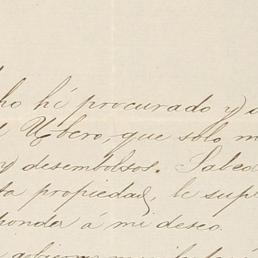 ho hé procurado y
Ubero, que solo m
y desembolsos. Sabed
ta propiedad, le sup
ponder á mi deseo.